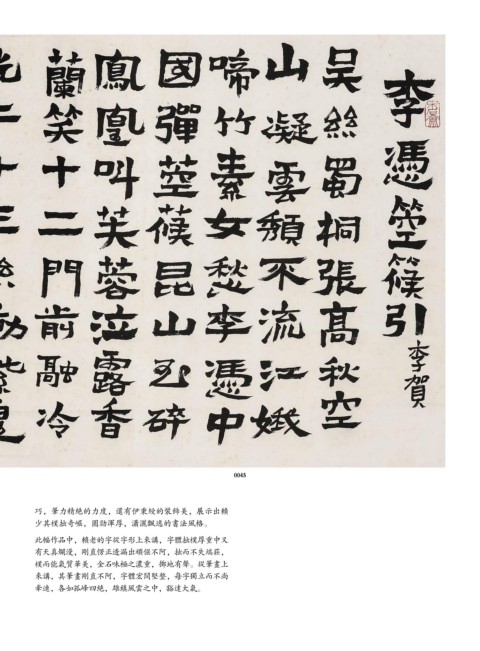 李憑箜篌引 李賀
吴絲蜀桐張高秋空
山凝雲頹不流江娥
啼竹素女愁李憑中
國彈箜篌昆山玉碎
鳳凰叫芙蓉泣露香
蘭笑十二門前融冷
光二十三絲動紫皇
0045
巧，筆力精絕的力度，還有伊秉綬的裝飾美，展示出賴
少其樸拙奇崛，圓勁渾厚，瀟灑飄逸的書法風格。
此幅作品中，賴老的字從字形上來講，字體拙樸厚重中又
有天真爛漫，剛直愣正透漏出頑倔不阿，拙而不失端莊，
樸而能氣質華美，金石味極之濃重，擲地有聲。從筆畫上
來講，其筆畫剛直不阿，字體宏闊堅整，每字獨立而不尚
牽連，各如孤峰四絕，雄鎮風雲之中，豁達大氣。